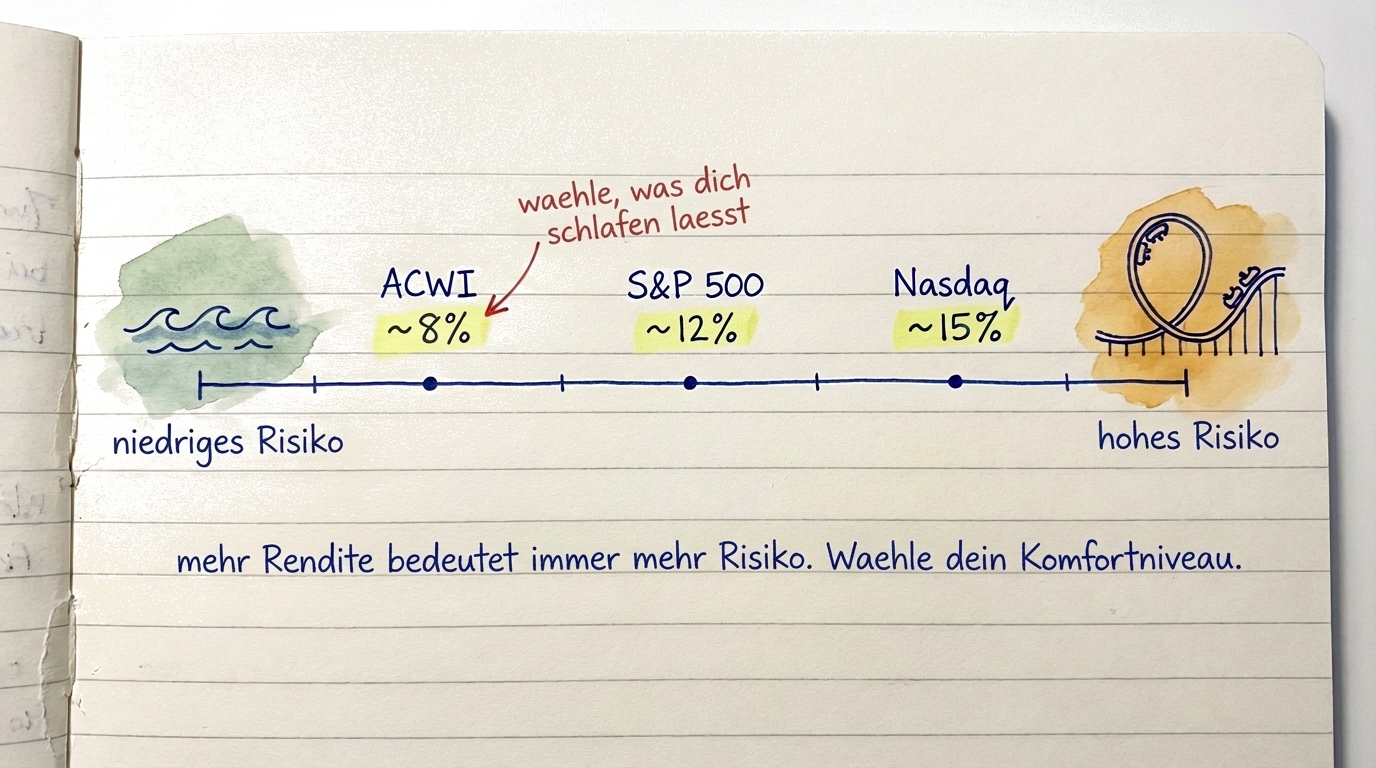 waehle, was dich
schlafen laesst
ACWI
S&P 500
Nasdaq
~8%
~12%
~15%
niedriges Risiko
hohes Risiko
mehr Rendite bedeutet immer mehr Risiko. Waehle dein Komfortniveau.